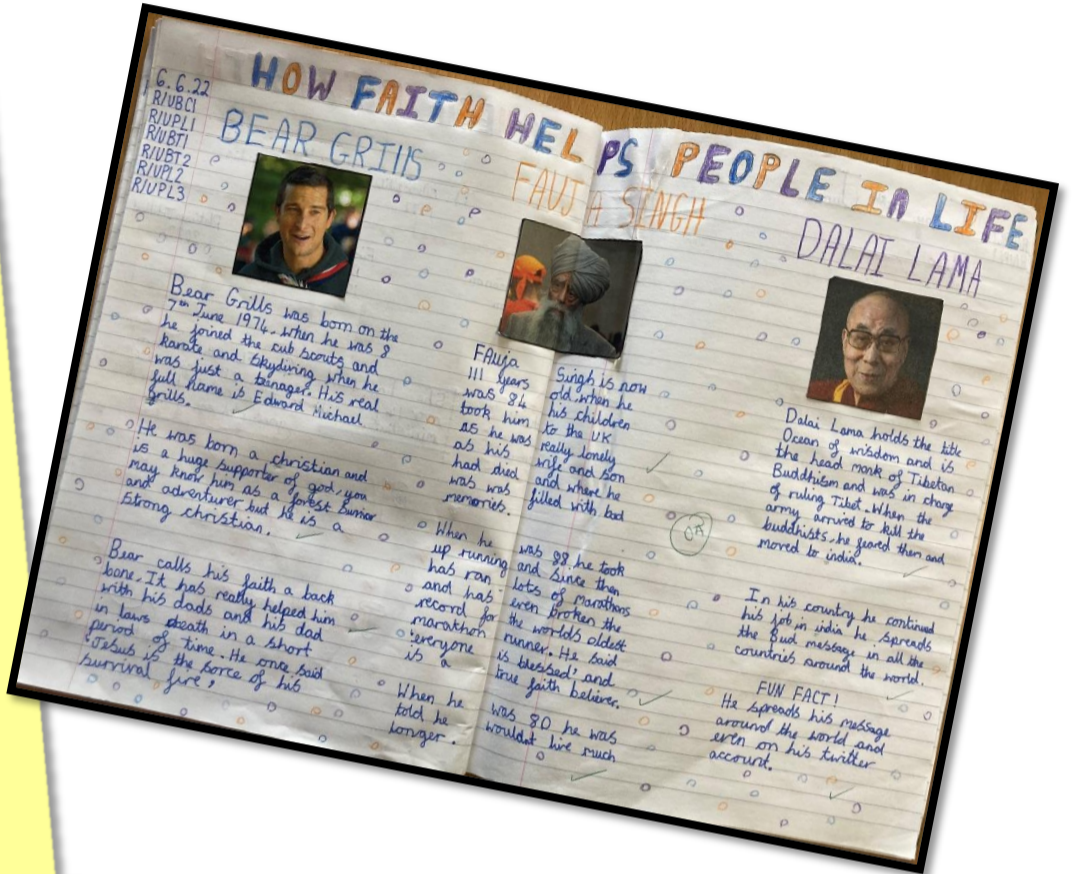 HOW FAITH HELPS PEOPLE IN LIFE
6.6.22
R/UBC1
R/UPL1
R/UBT1
R/UBT2
R/UPL2
R/UPL3
BEAR GRIllS
Bear Grills was born on the
7th June 1974. when he was 8
he joined the cub scouts and
karate and skydiving when he
was just a teenager. His real
full name is Edward Michael
grills.
He was born a christian and
is a huge supporter of god, you
may know him as a forest
and adventurer but he is a
strong christian.
Bear calls his faith a back
bone. It has really helped him
with his dads and his dad
in laws death in a short
period of time. He once said
'Jesus is the sorce of his
survival fire'
FAUJA SINGH
Fauja Singh is now
111 years old. when he
was 84 his children
took him to the UK
as he was really lonely
as his wife and son
had died and where he
was was filled with bad
memories.
When he was 88 he took
up running and since then
has ran lots of marathons
and has even broken the
record for the worlds oldest
marathon runner. He said
'everyone is blessed', and
is a true faith believer.
When he was 80 he was
told he wouldnt live much
longer.
DALAI LAMA
Dalai Lama holds the title
Ocean of wisdom and is
the head monk of Tibetan
Buddhism and was in charge
of ruling Tibet. When the
army arrived to kill the
buddhists. he feared then and
moved to india.
In his country he continued
his job in india he spreads
the Bud message in all the
countries around the world.
FUN FACT!
He spreads his message
around the world and
even on his twitter
account.